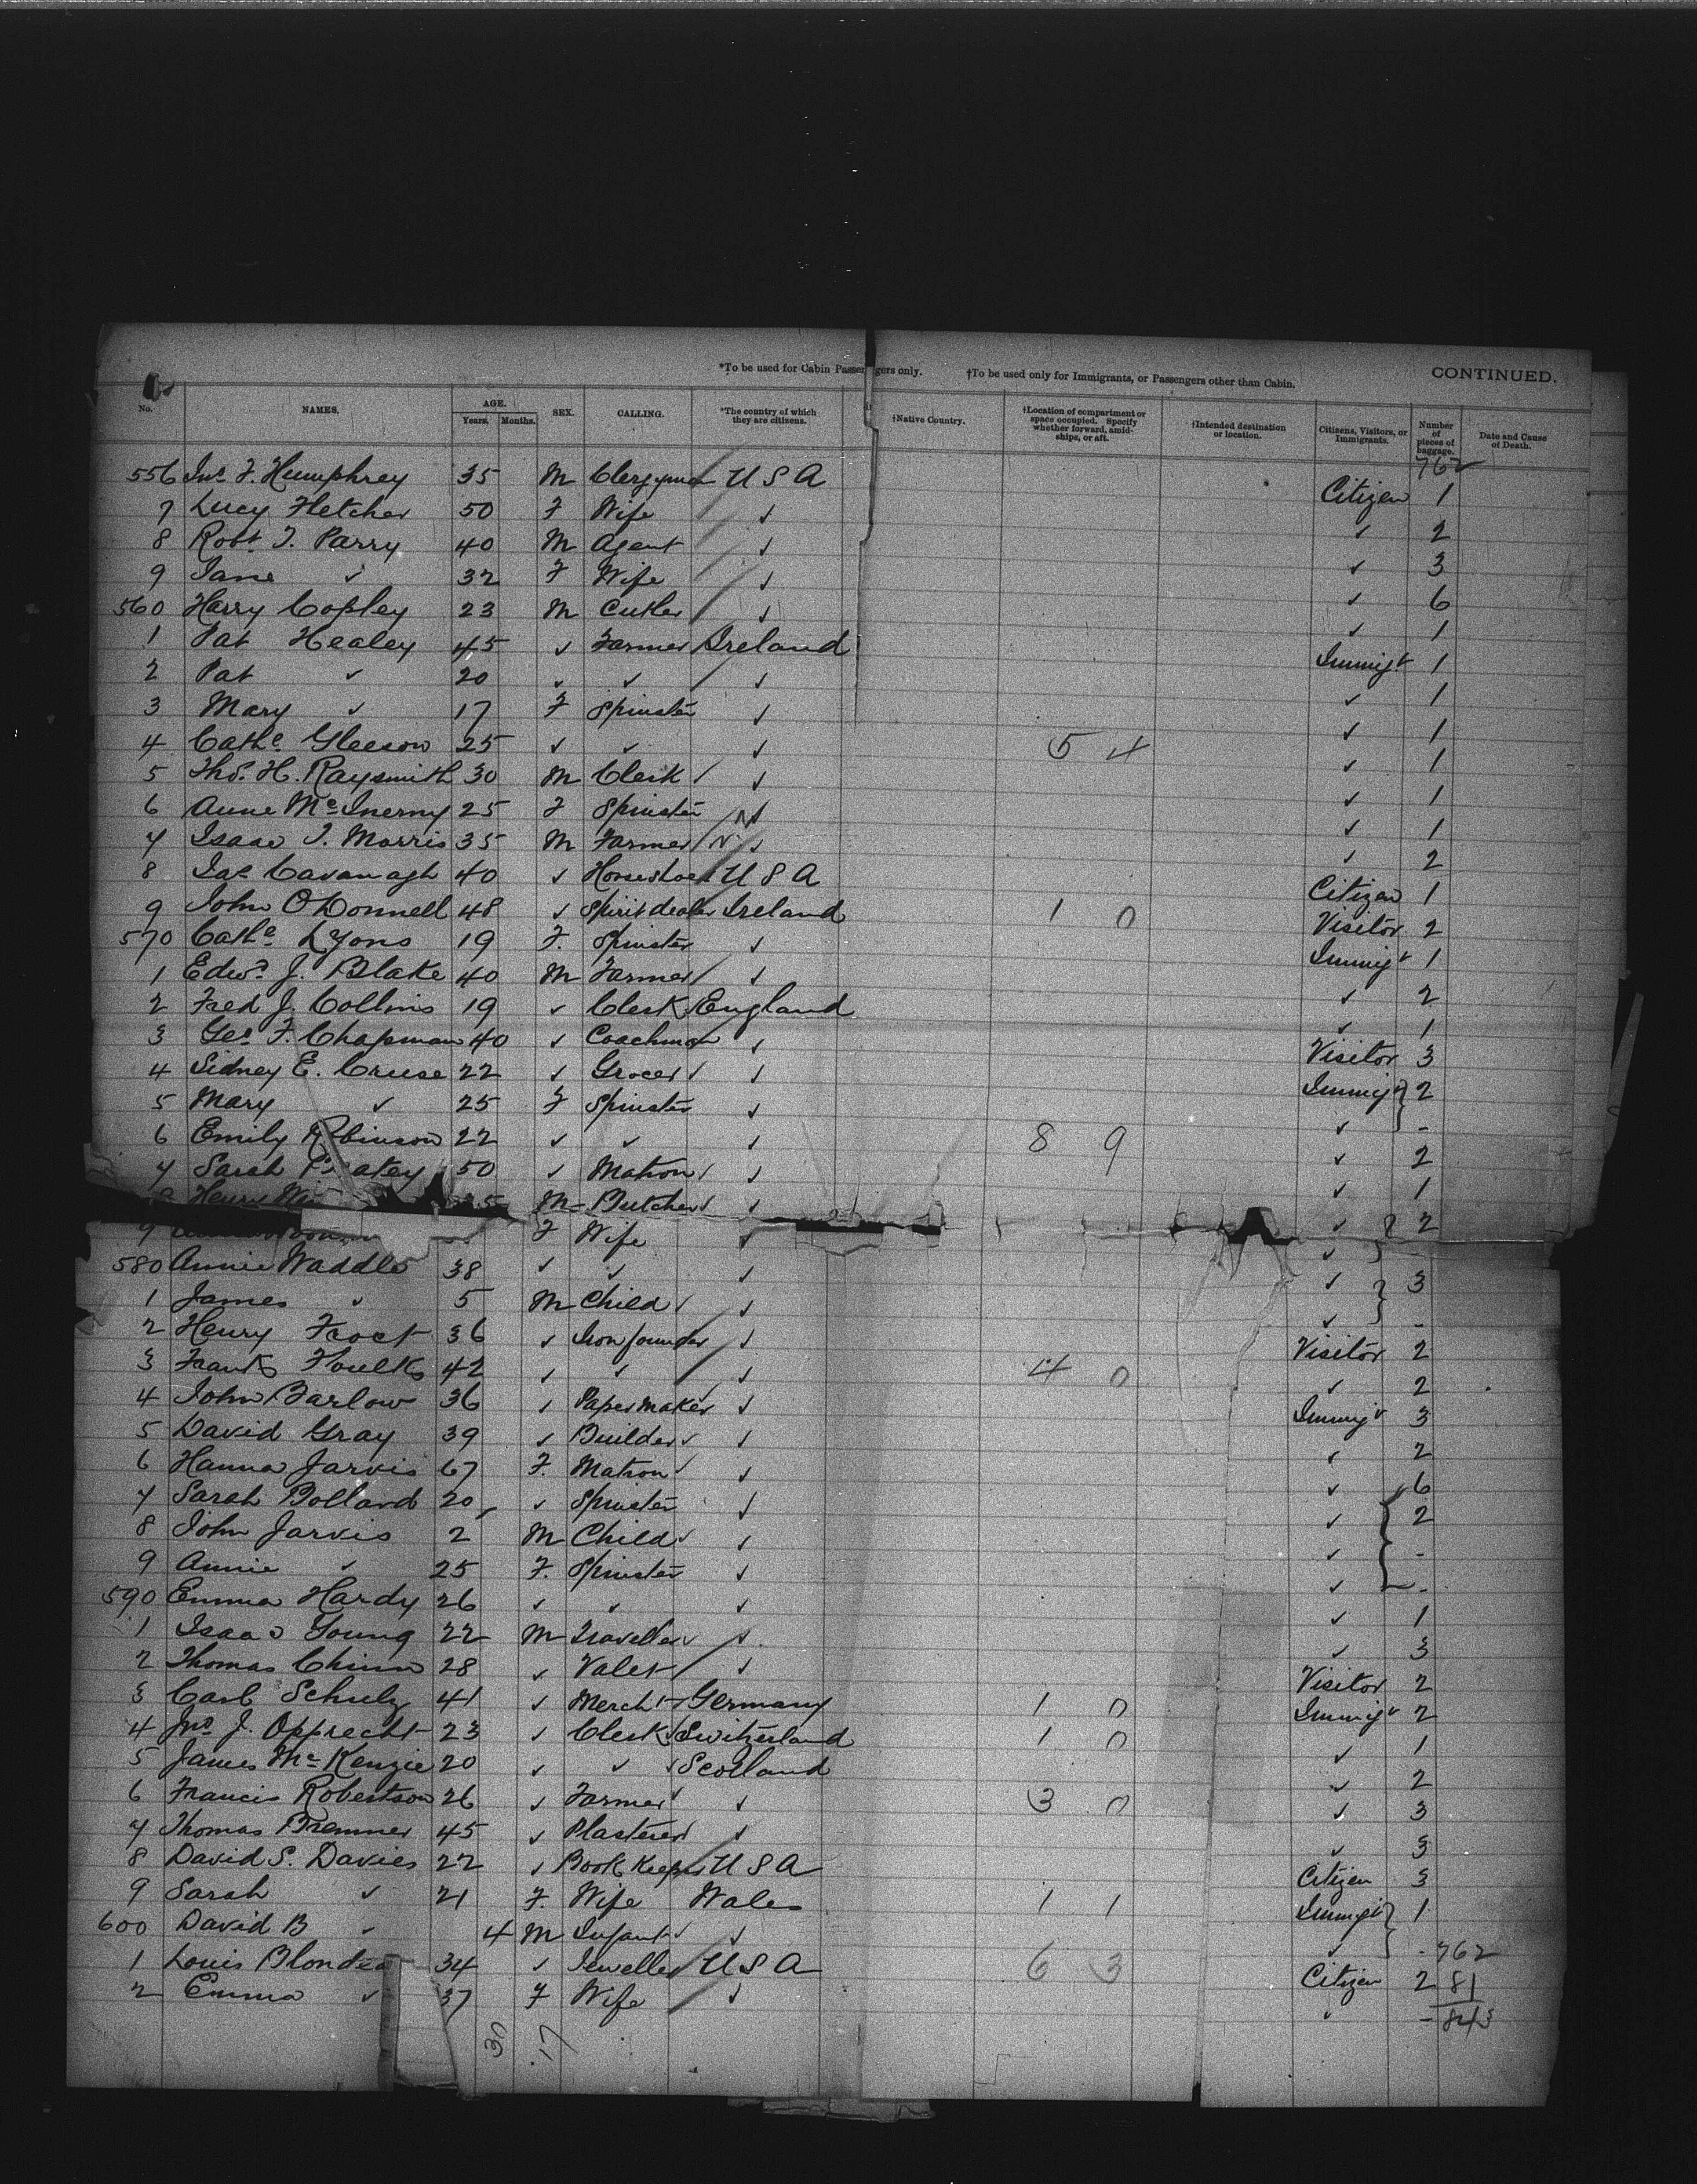 *To be used for Cabin Passengers only. †To be used only for Immigrants, or Passengers other than Cabin. CONTINUED.
No. NAMES. AGE. Years. Months. SEX. CALLING. *The country of which they are citizens. †Native Country. †Location of compartment or space occupied. Specify whether forward, amidships, or aft. †Intended destination or location. Citizens, Visitors, or Immigrants. Number of pieces of baggage. Date and Cause of Death.
762
556 Jno. F. Humphrey 35 M Clergyman U S A Citizen 1
7 Lucy Fletcher 50 F Wife ✓ ✓ 2
8 Robt. T. Parry 40 M Agent ✓ ✓ 3
9 Jane ✓ 32 F Wife ✓ ✓ 6
560 Harry Copley 23 M Cutler ✓ ✓ 1
1 Pat Healey 45 ✓ Farmer Ireland Immigt 1
2 Pat ✓ 20 ✓ ✓ ✓ ✓ 1
3 Mary ✓ 17 F Spinster ✓ ✓ 1
4 Cathe. Gleeson 25 ✓ ✓ ✓ 5 4 ✓ 1
5 Thos. H. Raysmith 30 M Clerk ✓ ✓ 1
6 Anne McInerny 25 F Spinster ✓ ✓ 1
7 Isaac J. Morris 35 M Farmer ✓ ✓ 2
8 Jas. Cavanagh 40 ✓ Horseshoer U S A Citizen 1
9 John O'Donnell 48 ✓ Spirit dealer Ireland 1 0 Visitor 2
570 Cathe. Lyons 19 F. Spinster ✓ Immigt 1
1 Edwd. J. Blake 40 M Farmer ✓ ✓ 2
2 Fred J. Collins 19 ✓ Clerk England ✓ 1
3 Geo. F. Chapman 40 ✓ Coachman ✓ Visitor 3
4 Sidney E. Cruse 22 ✓ Grocer ✓ Immigt 2
5 Mary ✓ 25 F Spinster ✓ ✓ -
6 Emily Robinson 22 ✓ ✓ ✓ 8 9 ✓ 2
7 Sarah 50 ✓ Matron ✓ ✓ 1
8 Henry M Butcher ✓ ✓ 2
9 F Wife ✓ ✓
580 Annie Waddle 38 ✓ ✓ ✓ ✓ 3
1 James ✓ 5 M Child ✓ ✓ -
2 Henry Frost 36 ✓ Iron founder ✓ Visitor 2
3 Frank Foulks 42 ✓ ✓ ✓ 4 0 ✓ 2
4 John Barlow 36 ✓ Paper maker ✓ Immigt 3
5 David Gray 39 ✓ Builder ✓ ✓ 2
6 Hanna Jarvis 67 F. Matron ✓ ✓ 6
7 Sarah Bollard 20 ✓ Spinster ✓ ✓ 2
8 John Jarvis 2 M Child ✓ ✓ -
9 Annie ✓ 25 F. Spinster ✓ ✓ -
590 Emma Hardy 26 ✓ ✓ ✓ ✓ 1
1 Isaac Young 22 M Traveller ✓ ✓ 3
2 Thomas Chinn 28 ✓ Valet ✓ Visitor 2
3 Carl Schulz 41 ✓ Mercht Germany 1 0 Immigt 2
4 Jno. J. Opprecht 23 ✓ Clerk Switzerland 1 0 ✓ 1
5 James McKenzie 20 ✓ ✓ Scotland ✓ 2
6 Francis Robertson 26 ✓ Farmer ✓ 3 0 ✓ 3
7 Thomas Bremner 45 ✓ Plasterer ✓ ✓ 3
8 David S. Davies 22 ✓ Book Keeper U S A Citizen 3
9 Sarah ✓ 21 F. Wife Wales 1 1 Immigt 1
600 David B ✓ 4 M Infant ✓ ✓ - 762
1 Louis Blondea 34 ✓ Jeweller U S A 6 3 Citizen 2 81
2 Emma ✓ 37 F Wife ✓ ✓ - 843
30 17